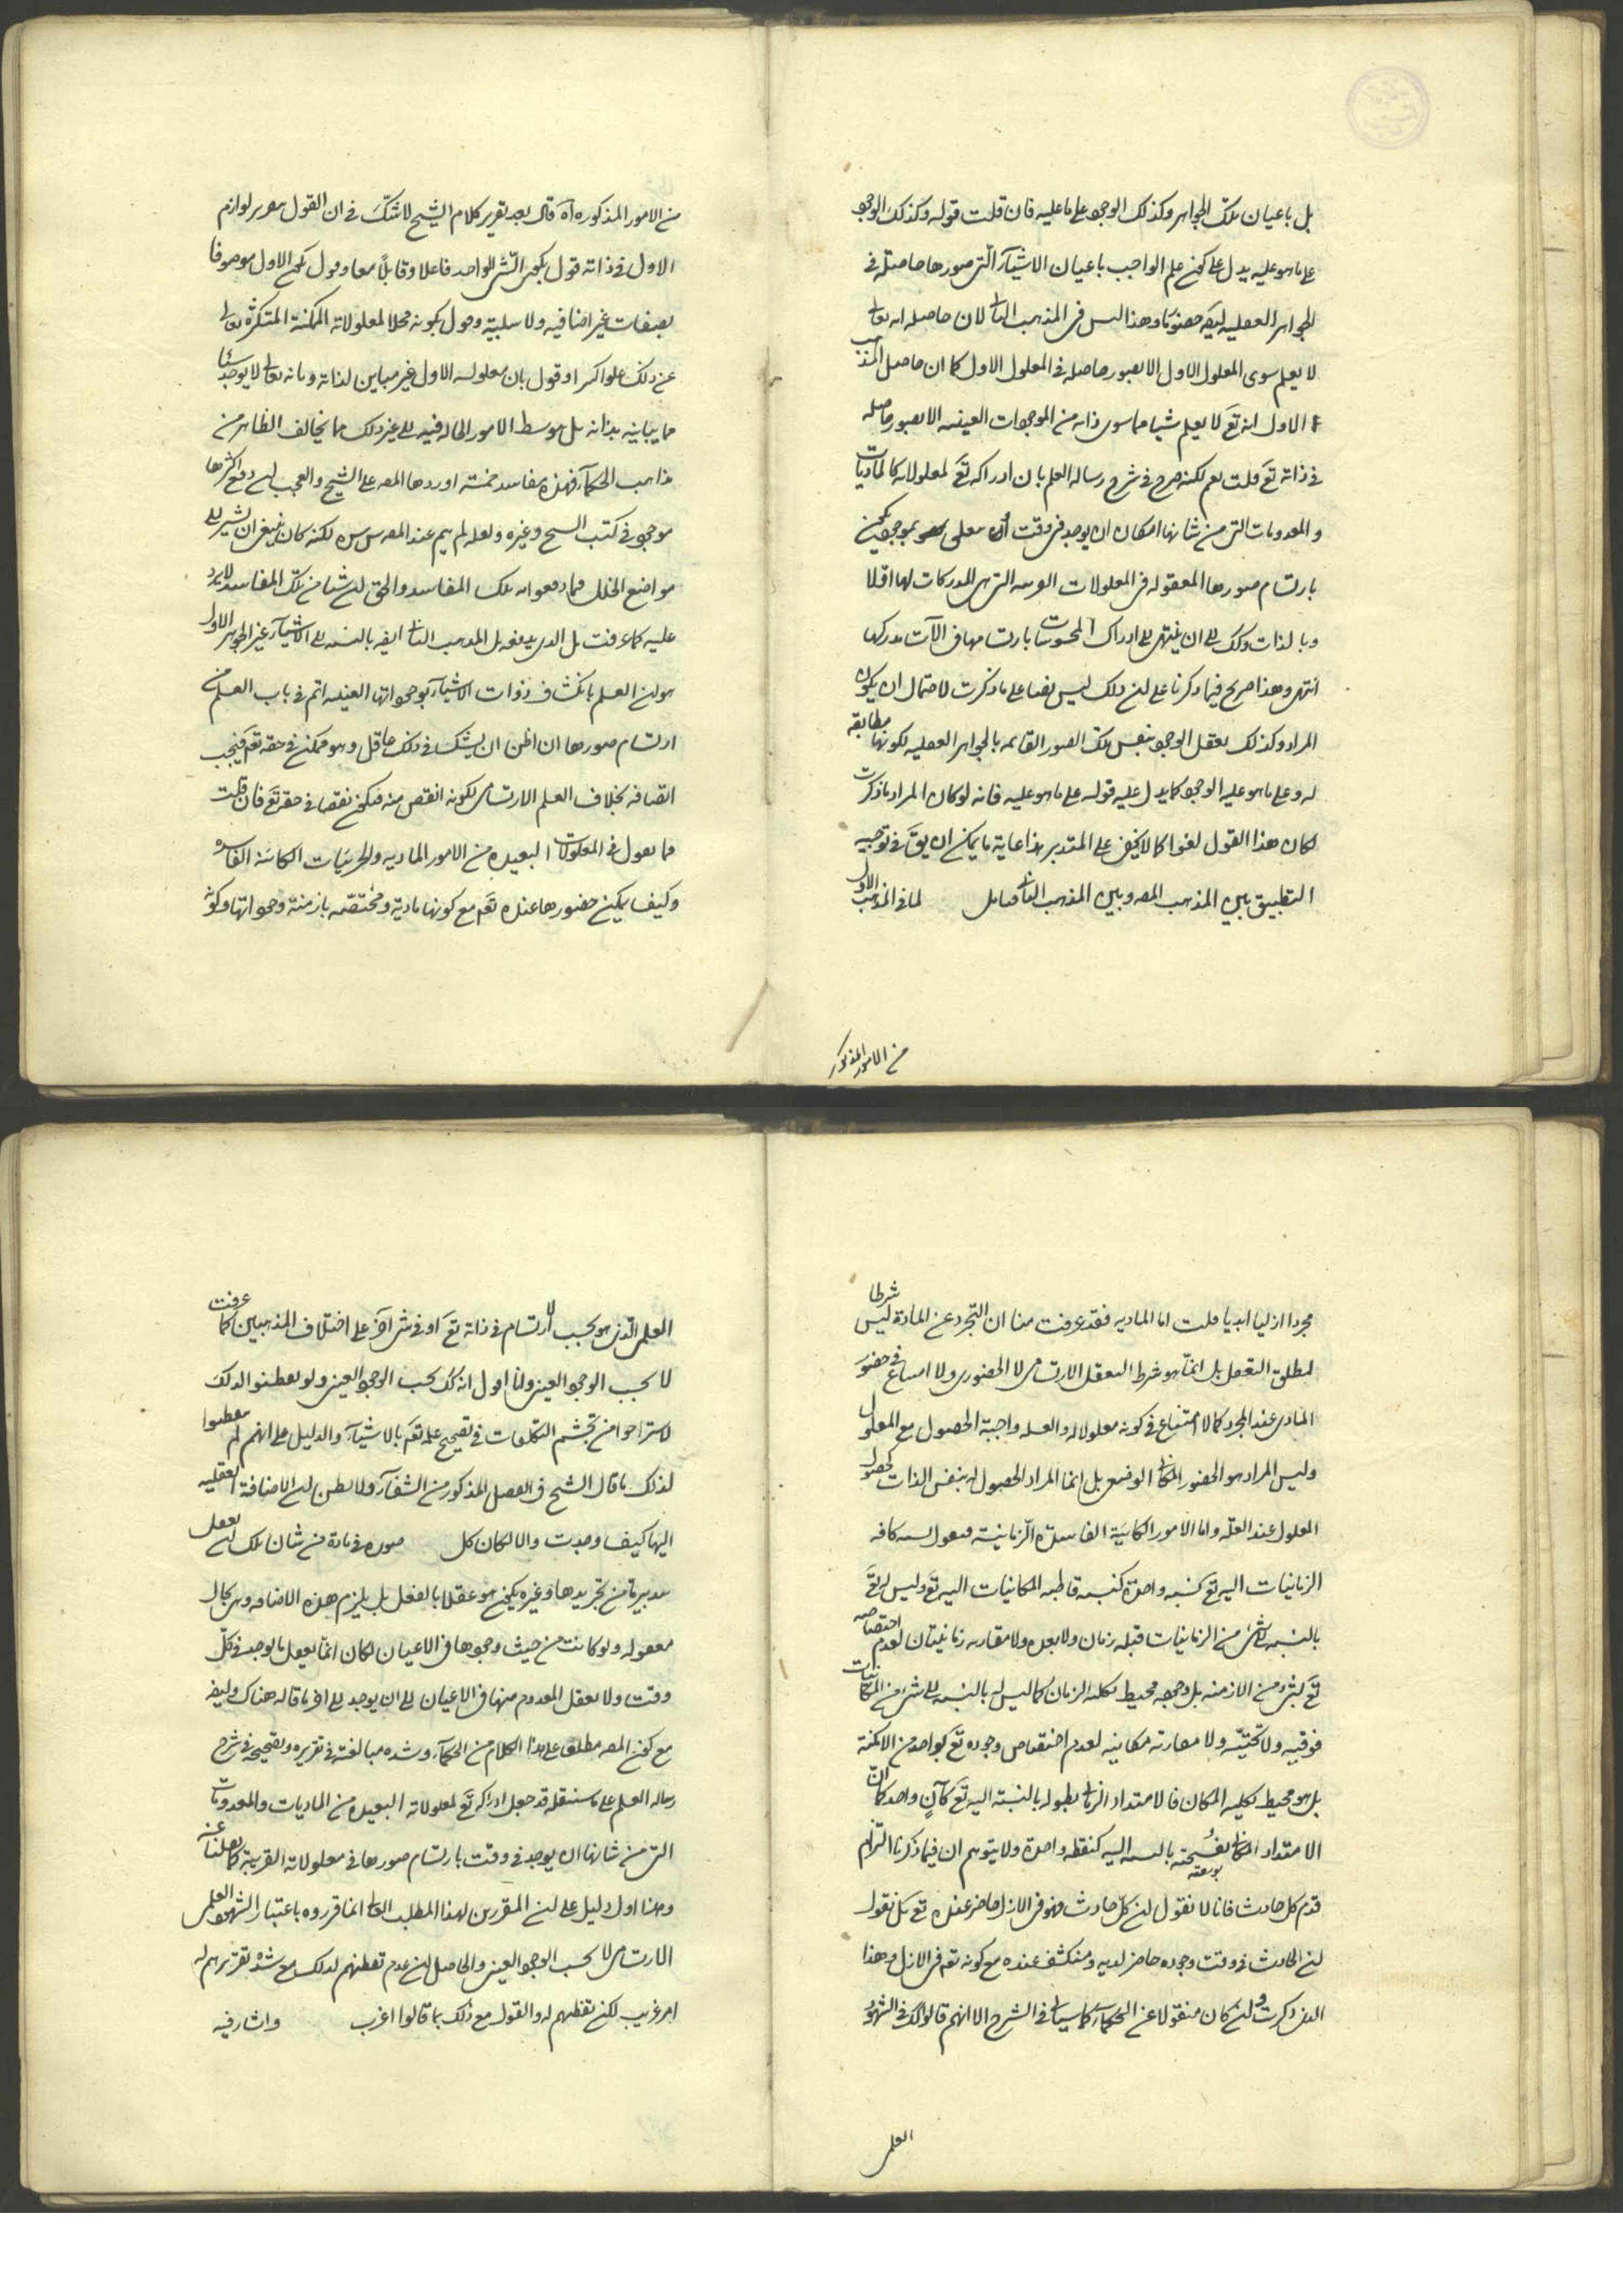 بل باعيان تلك الجواهر وكذلك الوجود على ما عليه فان قلت قوله وكذلك الوجود
على ما هو عليه يدل على كون علم الواجب باعيان الاشياء التى صورها حاصلة فى
الجواهر العقليه ايضا حضوريا وهذا ليس فى المذهب الثانى لان حاصله انه تعالى
لا يعلم سوى المعلول الاول الا بصور حاصله فى المعلول الاول كما ان حاصل المذهب
الاول انه تع لا يعلم شيا مما سوى ذاته من الموجودات العينيه الا بصور حاصله
فى ذاته تع قلت نعم لكنه صرح فى شرح رساله العلم بان ادراكه تع لمعلولاته كالماديات
والمعدومات التى من شانها امكان ان يوجد فى وقت او تعلق بموجود يكون
بارتسام صورها المعقوله فى المعلولات القريبه التى هى المدركات لها اولا
وبالذات وكذلك الى ان ينتهى الى ادراك المحسوسات بارتسامها فى الآت مدركها
انتهى وهذا صريح فيما ذكرنا على ان ذلك ليس نصا على ما ذكرت لاحتمال ان يكون
المراد وكذلك يعقل الوجود بنفس تلك الصور القائمه بالجواهر العقليه لكونها مطابقه
له وعلى ما هو عليه الوجود كما يدل عليه قوله على ما هو عليه فانه لو كان المراد ما ذكرت
لكان هذا القول لغوا كما لا يخفى على المتدبر هذا غاية ما يمكن ان يق فى توجيه
التطبيق بين المذهب المصه وبين المذهب الثانى فتامل لما فى المذهب الاول
من الامور المذكور
من الامور المذكوره آه قال بعد تقرير كلام الشيخ لا شك فى ان القول بتقرير لوازم
الاول فى ذاته قول بكون الشى الواحد فاعلا وقابلا معا وقول بكون الاول موصوفا
بصفات غير اضافيه ولا سلبية وقول بكونه محلا لمعلولاته الممكنة المتكثرة تعالى
عن ذلك علوا كبيرا وقول بان معلوله الاول غير مباين لذاته وبانه تعالى لا يوجد شيئا
مما يباينه بذاته بل بتوسط الامور الحالة فيه الى غير ذلك مما يخالف الظاهر من
مذاهب الحكماء فهذه مفاسد خمسة اوردها المصه على الشيخ والعجب ان دفع اكثرها
موجود فى كتب الشيخ وغيره ولعله لم يتم عند المصه قدس سره لكنه كان ينبغى ان يشير الى
مواضع الخلل فيما دفعوا به تلك المفاسد والحق ان شيا من تلك المفاسد لا يرد
عليه كما عرفت بل الذى يدفعه بل المذهب الثانى ايضا بالنسبه الى الاشياء غير الجوهر الاول
هو ان العلم بانكشاف ذوات الاشياء بوجوداتها العينيه اتم فى باب العلم من
ارتسام صورها ان اظن ان يشك فى ذلك عاقل وهو ممكن فى حقه تع فيجب
اتصافه بخلاف العلم الارتسامى لكونه انقص منه فيكون نقصا فى حقه تع فان قلت
فما تقول فى المعلولات البعيده من الامور الماديه والجزئيات الكائنة الفاسده
وكيف يمكن حضورها عنده تع مع كونها مادية ومختصه بازمنة وجوداتها وكونه
مجردا ازليا ابديا قلت اما الماديه فقد عرفت منا ان التجرد عن المادة ليس شرطا
لمطلق التعقل بل انما هو شرط التعقل الارتسامى لا الحضورى ولا امتناع فى حضور
المادى عند المجرد كما لا امتناع فى كونه معلولا له والعلة واجبة الحصول مع المعلول
وليس المراد هو الحضور المكانى الوضعى بل انما المراد الحصول له بنفس الذات كحصول
المعلول عند العلة واما الامور الكائنة الفاسدة الزمانية فنقول نسبه كافه
الزمانيات اليه تع نسبه واحدة كنسبه قاطبه المكانيات اليه تع وليس له تع
بالنسبه الى شى من الزمانيات قبليه زمان ولا بعديه ولا مقارنه زمانيتان لعدم اختصاصه
تع بشى من الازمنه بل وجوده محيط بكلية الزمان كما ليس له بالنسبه الى شى من المكانيات
فوقيه ولا تحتيه ولا مقارنه مكانيه لعدم اختصاص وجوده تع بواحد من الامكنة
بل هو محيط بكليه المكان فالامتداد الزمانى بطوله بالنسبة اليه تع كآن واحد كما ان
الامتداد المكانى بفسحته بوسعته بالنسبه اليه كنقطه واحدة ولا يتوهم ان فيما ذكرنا التزام
قدم كل حادث فانا لا نقول ان كل حادث فهو فى الازل حاضر عنده تع بل نقول
ان الحادث فى وقت وجوده حاضر لديه ومنكشف عنده مع كونه تع فى الازل وهذا
الذى ذكرت وان كان منقولا عن الحكماء كما سياتى فى الشرح الا انهم قالوا ذلك فى الشهود
العلمى
العلمى الذى هو بحسب الارتسام فى ذاته تع او فى شى آخر على اختلاف المذهبين كما عرفت
لا بحسب الوجود العينى وانا اقول انه كذلك بحسب الوجود العينى ولو تفطنوا لذلك
لاستراحوا من تجشم التكلفات فى تصحيح علمه تع بالاشياء والدليل على انهم لم يتفطنوا
لذلك ما قال الشيخ فى الفصل المذكور من الشفاء ولا يظن ان الاضافة العقليه
اليها كيف وجدت والا لكان كل صوره فى مادة من شان تلك ان تعقل
بتدبير ما من تجريدها وغيره يكون هو عقلا بالفعل بل يلزم هذه الاضافه وهى بحال
معقوله ولو كانت من حيث وجودها فى الاعيان لكان انما يعقل ما يوجد فى كل
وقت ولا يعقل المعدوم منها فى الاعيان الى ان يوجد الى اخر ما قاله هناك وايضا
مع كون المصه مطلعا على هذا الكلام من الحكماء وشده مبالغته فى تقريره وتصحيحه فى شرح
رساله العلم على ما سننقله قد جعل ادراكه تع لمعلولاته البعيده من الماديات والمعدومات
التى من شانها ان يوجد فى وقت بارتسام صورها فى معلولاته القريبة كما نقلنا عنه
وهذا اول دليل على ان المقررين لهذا المطلب العالى انما قرروه باعتبار الشهود العلمى
الارتسامى لا بحسب الوجود العينى والحاصل ان عدم تفطنهم لذلك مع شدة تقريرهم له
امر غريب لكن تفطنهم له والقول مع ذلك بما قالوا اغرب واشار فيه